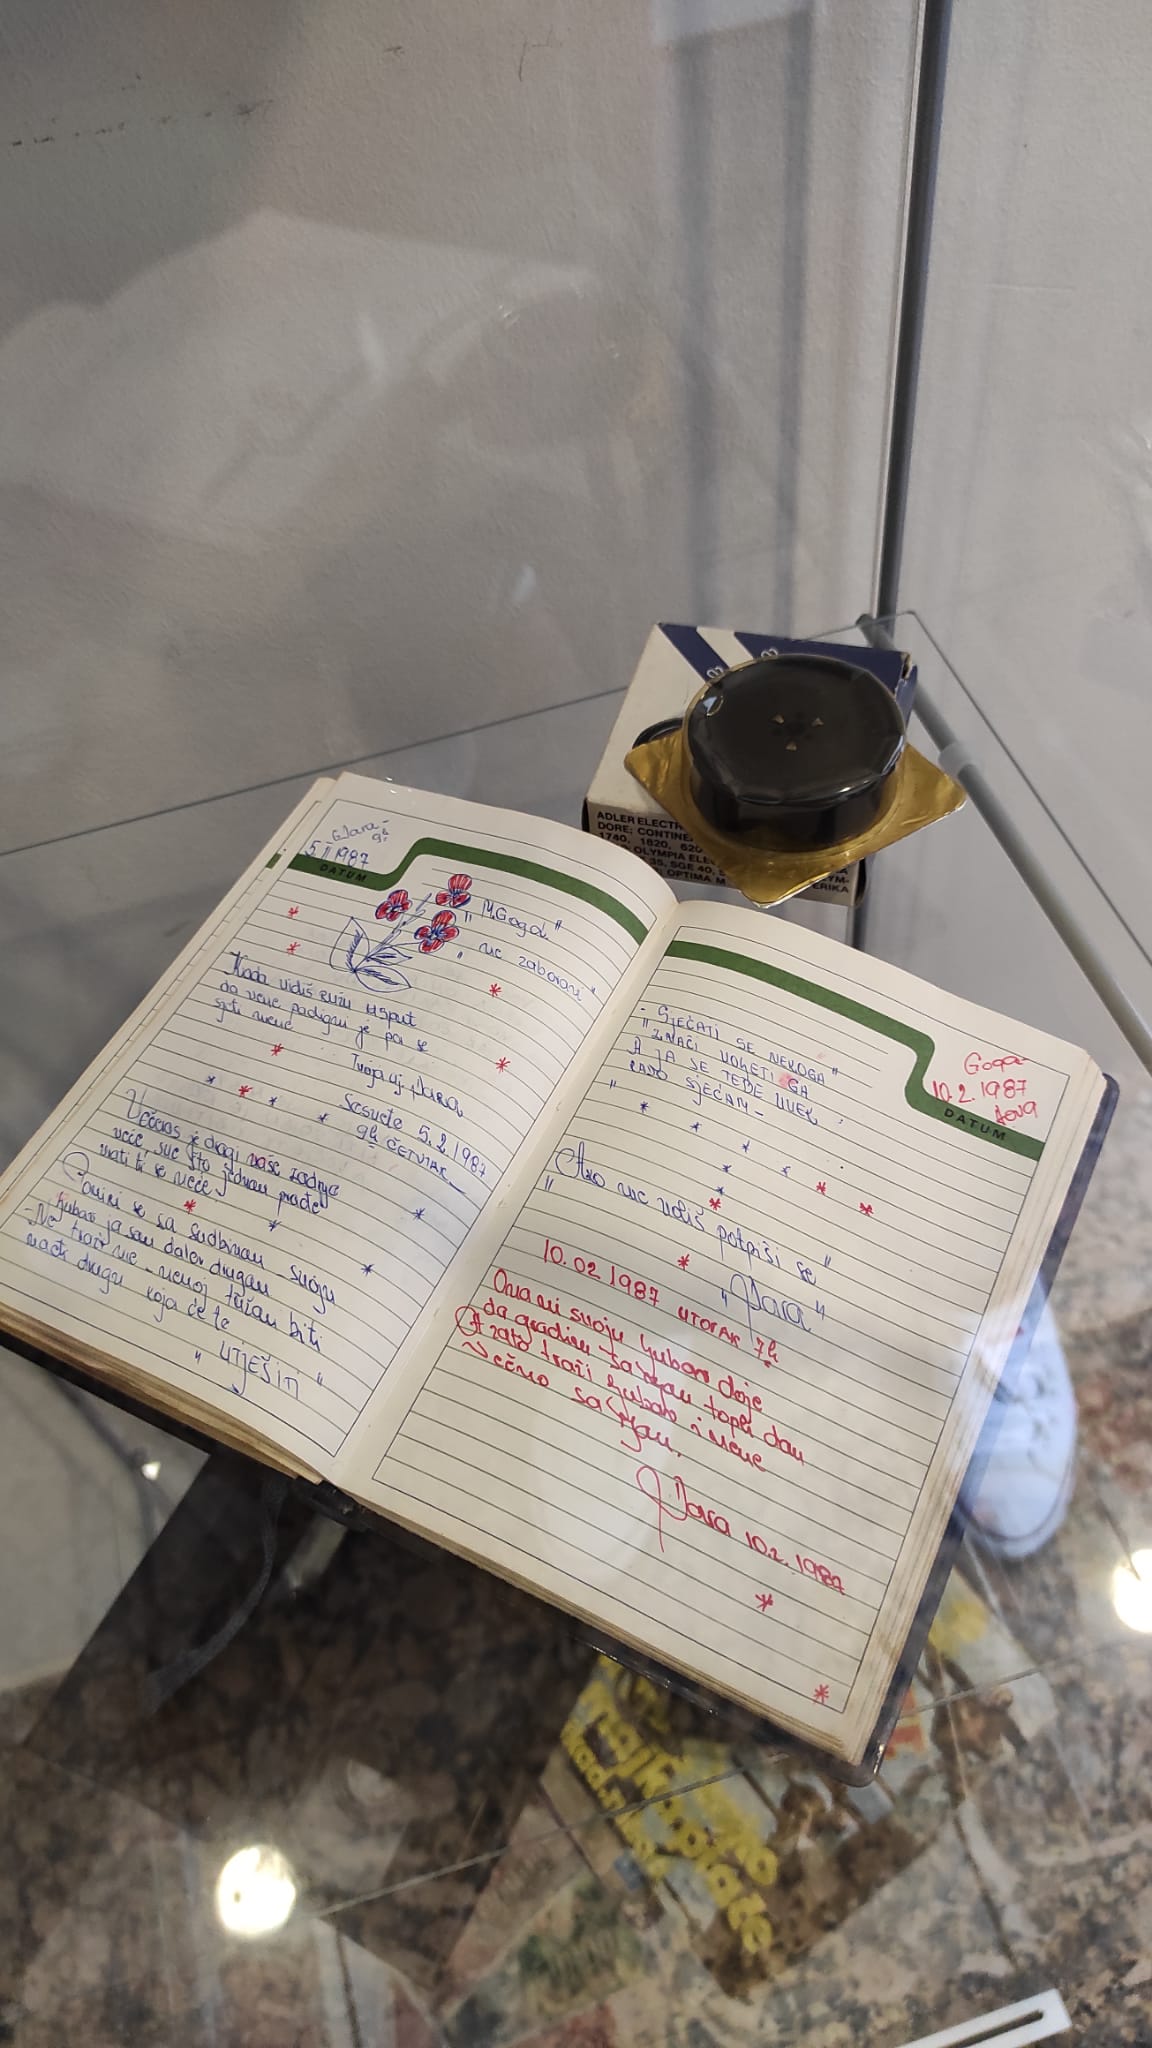 5 II 1987
DATUM
"M. Goga"
"ne zaboravi"
Kada vidiš ružu usput
da vene podigni je pa se
sjeti mene
Tvoja uj. Dara
Sesvete 5.2.1987
9h ČETVRTAK
Večeras je dragi naše zadnje
veče, sve što jednom prođe
vrati ti se neće.
Pomiri se sa sudbinom svojom
ljubav ja sam dalev drugom
- Ne traži me - nemoj tužan biti
nađi drugu koja će te
" UTJEŠITI "
- SJEĆATI SE NEKOGA "
" ZNAČI VOLJETI GA
A JA SE TEBE UVEK,
RADO SJEĆAM -
Goga
10.2.1987
DATUM
Ako me voliš potpiši se "
" Dara "
10.02 1987 UTORAK 7h
Ona mi svoju ljubav daje
da gradim sa njom topli dom
A zato traži ljubav i mene
Večno sa njom.
Dara 10.2.1987
ADLER ELECTR
DORE; CONTINE
1740, 1820, 620
OLYMPIA ELE
35, SGE 40, S
OPTIMA M
YM-
ERIKA